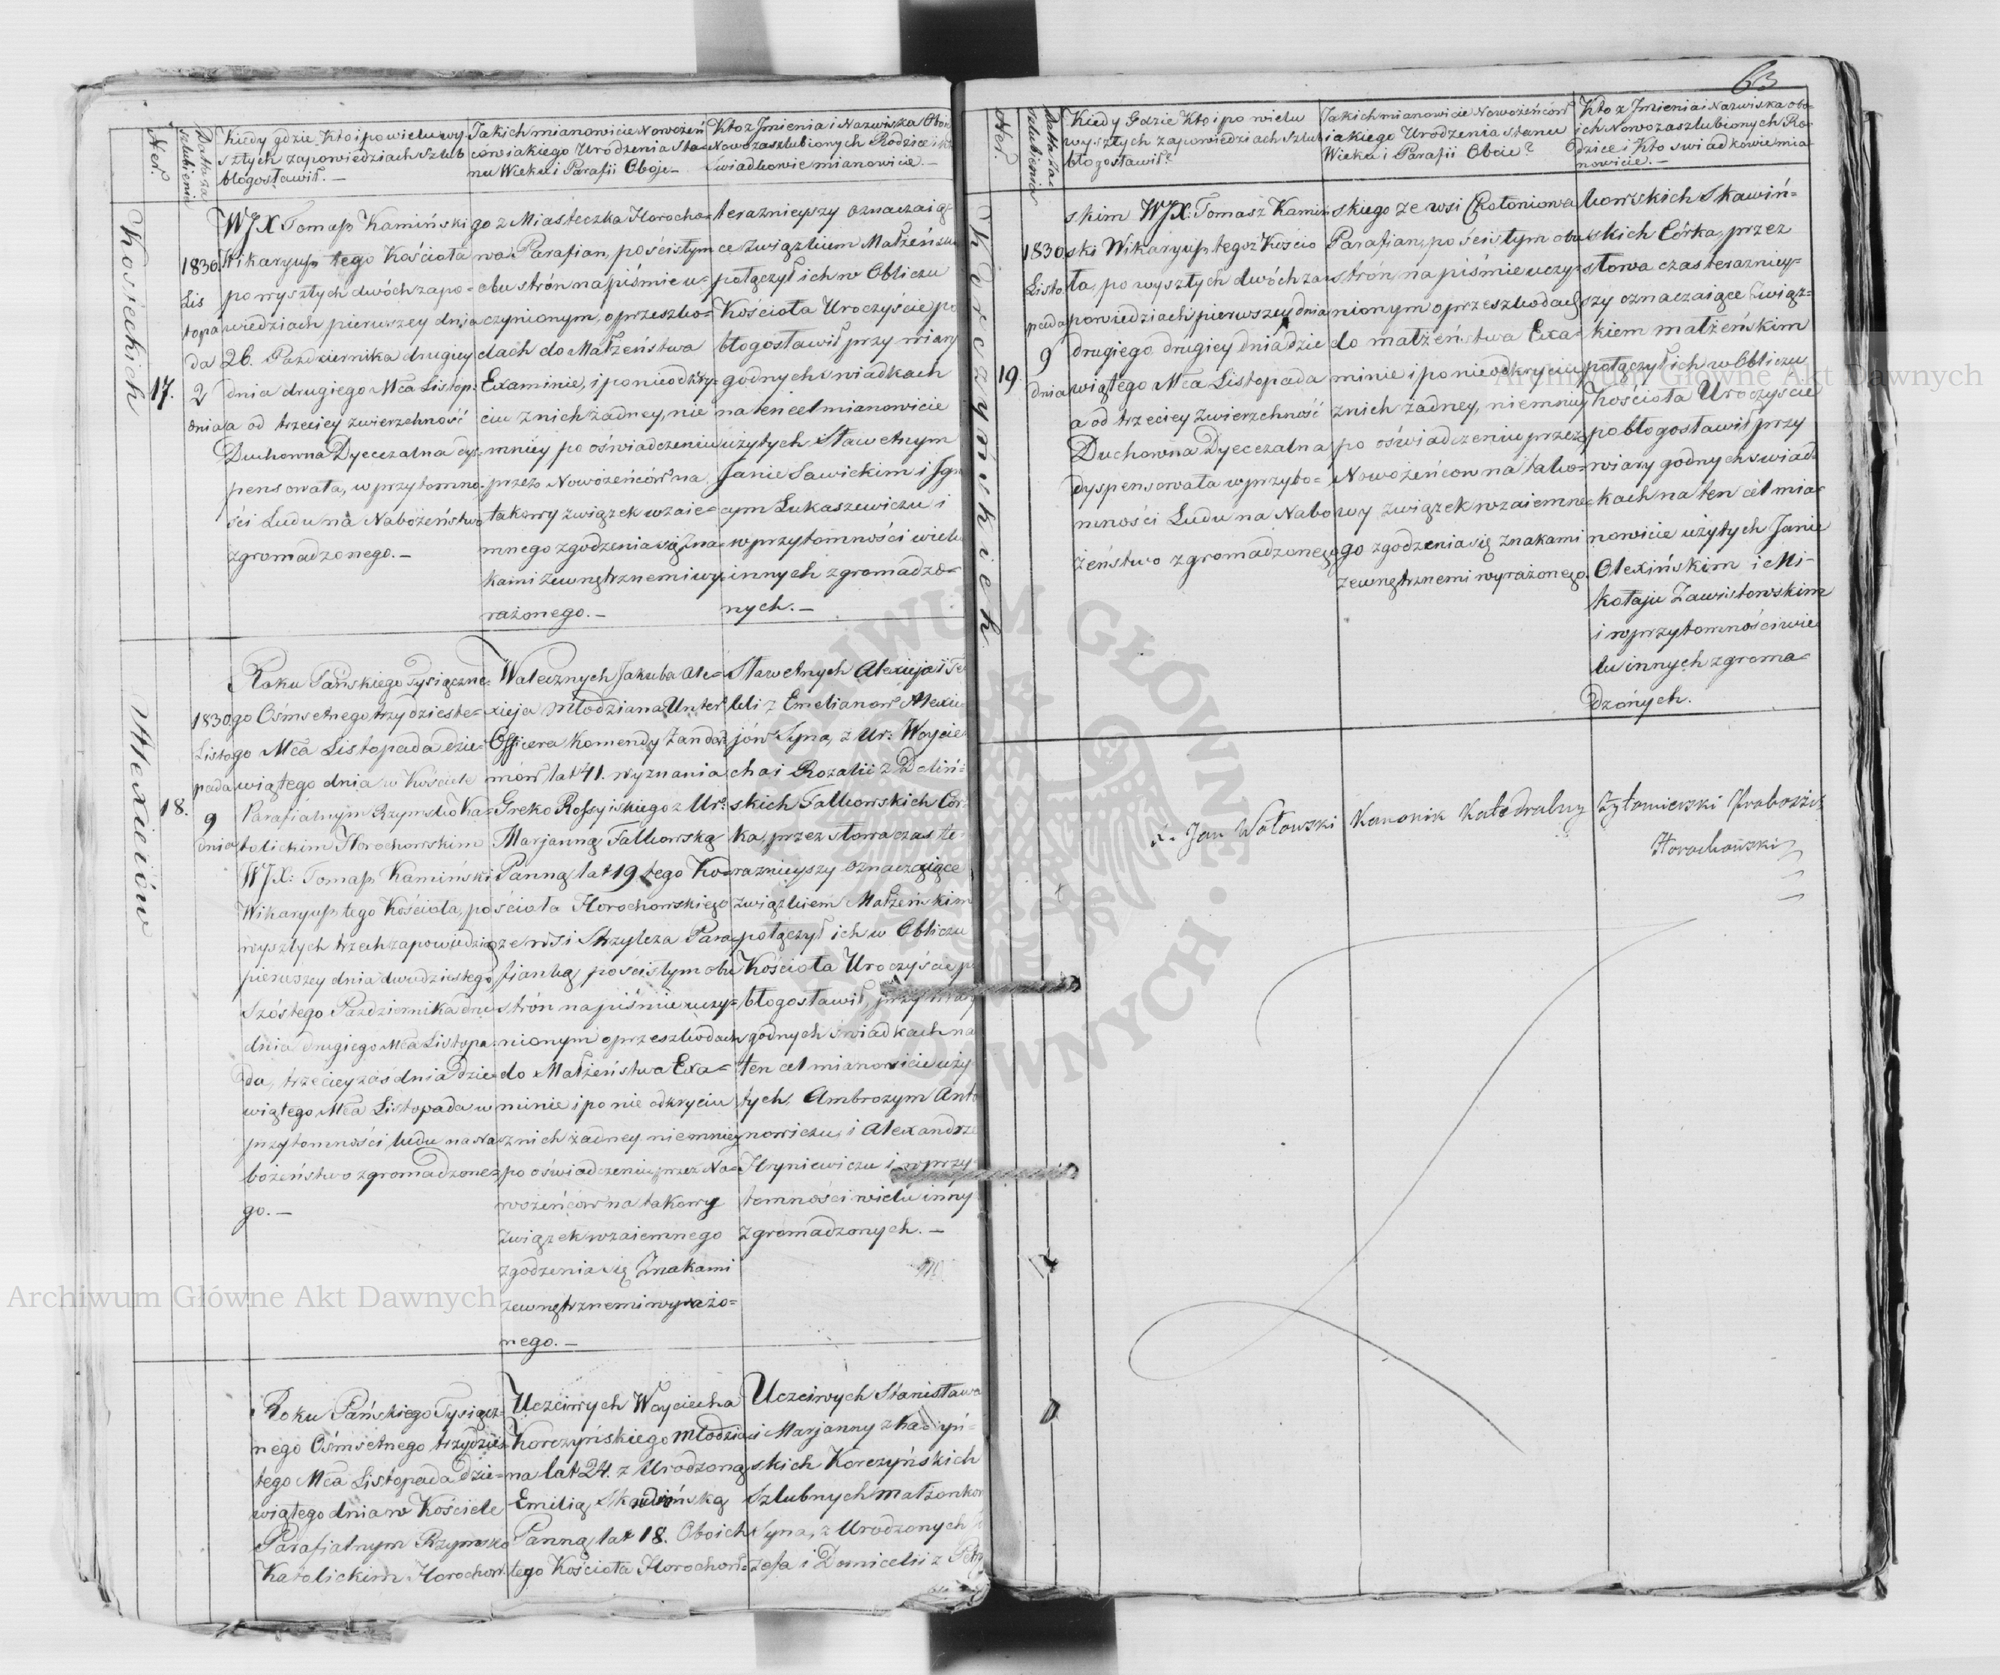 63
Ner.
Datta za
szlubienia
Kiedy gdzie Kto i po wielu wy-
szłych zapowiedziach Szlub
błogosławił. —
Jakich mianowicie Nowożeń
ców i jakiego Urodzenia Sta-
nu Wieku i Parafii Oboje —
Kto z Jmienia i Nazwiska Oboi
Nowozaszlubionych Rodzice i kto
Świadkowie mianowicie —
Kosteckich
17.
1830
Lis
topa
da
2
dnia
WJX Tomasz Kamiński
Wikaryusz tego Kościoła
po wyszłych dwóch zapo-
wiedziach pierwszey dnia
26. Pazdziernika drugiey
dnia drugiego Mca Listop.
a od trzeciey zwierzchność
Duchowna Dyecezalna dys-
pensowała, w przytomno-
ści Ludu na Nabożeństwo
zgromadzonego. —
go z Miasteczka Horocho-
wa Parafian, po ścisłym
obu strón na piśmie u-
czynionym, o przeszko-
dach do Małżeństwa
Examinie, i po nieodkry-
ciu z nich żadney, nie
mniey po oświadczeniu
przez Nowożeńców na
takowy związek wzaie-
mnego zgodzenia się zna-
kami zewnętrznemi wy-
rażonego. —
teraznieyszy oznaczaią-
ce Związkiem Małżeńskim
połączył ich w Obliczu
Kościoła Uroczyście po
błogosławił przy wiary
godnych swiadkach
na ten cel mianowicie
użytych Sławetnym
Janie Sawickim i Jgna
cym Łukaszewiczu i
w przytomności wielu
innych zgromadzo-
nych. —
Alexieiów
18.
1830
Listo
pada
9
dnia
Roku Pańskiego Tysiączne-
go Ośmsetnego trzydzieste-
go Mca Listopada dzie-
wiątego dnia w Kościele
Parafialnym Rzymsko Ka-
tolickim Horochowskim
WJX: Tomasz Kamiński
Wikaryusz tego Kościoła, po
wyszłych trzech zapowiedziach
pierwszey dnia dwudziestego
Szóstego Pazdziernika dru
dnia drugiego Mca Listopa-
da, trzeciey zaś dnia dzie-
wiątego Mca Listopada w
przytomności ludu na Na-
bożeństwo zgromadzone-
go. —
Walecznych Jakuba Ale-
xieja Młodziana Unter
Officera Komendy Żandar
mów lat 41. wyznania
Greko Rossyiskiego z Ur.
Marjanną Falkowską
Panną lat 19 tego Ko-
ścioła Horochowskiego
ze wsi Strzylcza Para-
fianką, po ścisłym obu
strón na piśmie uczy-
nionym o przeszkodach
do Małżeństwa Exa-
minie i po nie odkryciu
z nich żadney niemniey
po oświadczeniu przez No-
wożeńców na takowy
związek wzaiemnego
zgodzenia się Znakami
zewnętrznemi wyrażo-
nego. —
Sławetnych Alexieja i Te
kli z Emelianow Alexie
jów Syna, z Ur: Woycie
cha i Rozalii z Deliń-
skich Falkowskich Cór-
ka, przez słowa czas te
raznieyszy oznaczaiące
związkiem Małżeńskim
połączył ich w Obliczu
Kościoła Uroczyście po
błogosławił, przy wiary
godnych świadkach na
ten cel mianowicie uży
tych Ambrozym Anto
nowiczu, i Alexandrze
Hryniewiczu i w przy-
tomności wielu inny
zgromadzonych. —
Roku Pańskiego Tysiącz-
nego Ośmsetnego trzydzies
tego Mca Listopada dzie-
wiątego dnia w Kościele
Parafialnym Rzymsko
Katolickim Horochow
Uczciwych Woyciecha
Korczyńskiego Młodzia-
na lat 24. z Urodzoną
Emilią Skawińską
Panną lat 18. Oboich
tego Kościoła Horochow-
Uczciwych Stanisława
i Marjanny z Kaczyń-
skich Korczyńskich
Szlubnych małżonków
Syna, z Urodzonych Jó
zefa i Domicelii z Pet
Ner.
Datta Za
szlubienia
Kiedy Gdzie Kto i po wielu
wyszłych zapowiedziach Szlub
błogosławił?
Jakich mianowicie Nowożeńców
i jakiego Urodzenia stanu
Wieku i Parafii Oboie?
Kto z Jmienia i Nazwiska obo-
ich Nowozaszlubionych Ro-
dzice i Kto swiadkowie mia-
nowicie. —
Korczyńskich
19.
1830
Listo
pada
9
dnia
skim WJX: Tomasz Kamiń-
ski Wikaryusz tegoż Kościo
ła, po wyszłych dwóch za-
powiedziach pierwszey dnia
drugiego drugiey dnia dzie
wiątego Mca Listopada
a od trzeciey Zwierzchność
Duchowna Dyecezalna
dyspensowała w przyto-
mności Ludu na Nabo
żeństwo zgromadzonego
skiego ze wsi Chołoniowa
Parafian, po ścisłym obu
strón, na piśmie uczy-
nionym o przeszkodach
do małżeństwa Exa-
minie i po nieodkryciu
z nich żadney, niemniey
po oświadczeniu przez
Nowożeńcow na tako-
wy Związek wzaiemne-
go zgodzenia się znakami
zewnętrznemi wyrażonego.
kowskich Skawiń-
skich Córka, przez
słowa czas terazniey-
szy oznaczaiące Związ-
kiem małżeńskim
połączył ich w Obliczu
Kościoła Uroczyście
pobłogosławił przy
wiary godnych swiad
kach na ten cel mia-
nowicie użytych Janie
Olexińskim i Mi-
kołaju Zawistowskim
i w przytomności wie
lu innych zgroma-
dzónych.
X. Jan Wołowski Kanonik Katedralny Żytomierski Proboszcz
Horochowski
Archiwum Główne Akt Dawnych
Archiwum Główne Akt Dawnych